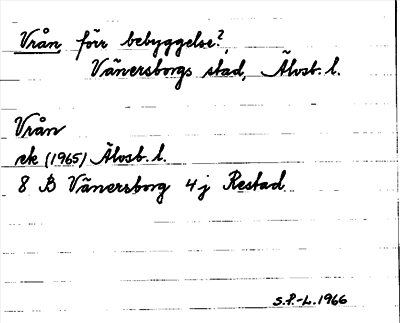 Vrån, förr bebyggelse?,
Vänersborgs stad, Älvsb. l.
Vrån
ek (1965) Älvsb. l.
8 B Vänersborg 4j Restad
S.P.-L. 1966